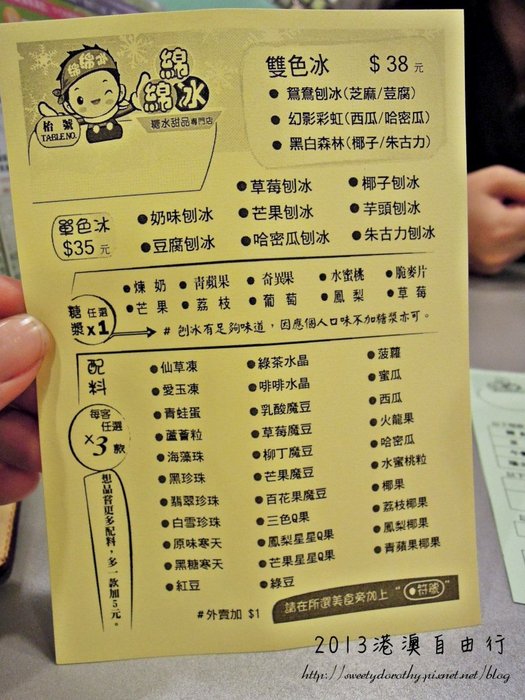 綿綿冰
綿
綿冰
糖水甜品專門店
枱號
TABLE NO.
雙色冰 $38元
●鴛鴦刨冰(芝麻/荳腐)
●幻影彩虹(西瓜/哈密瓜)
●黑白森林(椰子/朱古力)
單色冰
$35元
●草莓刨冰 ●椰子刨冰
●奶味刨冰 ●芒果刨冰 ●芋頭刨冰
●豆腐刨冰 ●哈密瓜刨冰 ●朱古力刨冰
糖漿 任選 x1
●煉奶 ●青蘋果 ●奇異果 ●水蜜桃 ●脆麥片
●芒果 ●荔枝 ●葡萄 ●鳳梨 ●草莓
# 刨冰有足夠味道，因應個人口味不加糖漿亦可。
配料
每客任選 x3 款
想品嘗更多配料，多一款加5元。
●仙草凍 ●綠茶水晶 ●菠蘿
●愛玉凍 ●啡啡水晶 ●蜜瓜
●青蛙蛋 ●乳酸魔豆 ●西瓜
●蘆薈粒 ●草莓魔豆 ●火龍果
●海藻珠 ●柳丁魔豆 ●哈密瓜
●黑珍珠 ●芒果魔豆 ●水蜜桃粒
●翡翠珍珠 ●百花果魔豆 ●椰果
●白雪珍珠 ●三色Q果 ●荔枝椰果
●原味寒天 ●鳳梨星星Q果 ●鳳梨椰果
●黑糖寒天 ●芒果星星Q果 ●青蘋果椰果
●紅豆 ●綠豆
#外賣加 $1
請在所選美食旁加上"●符號"
2013港澳自由行
http://sweetydorothy.pixnet.net/blog